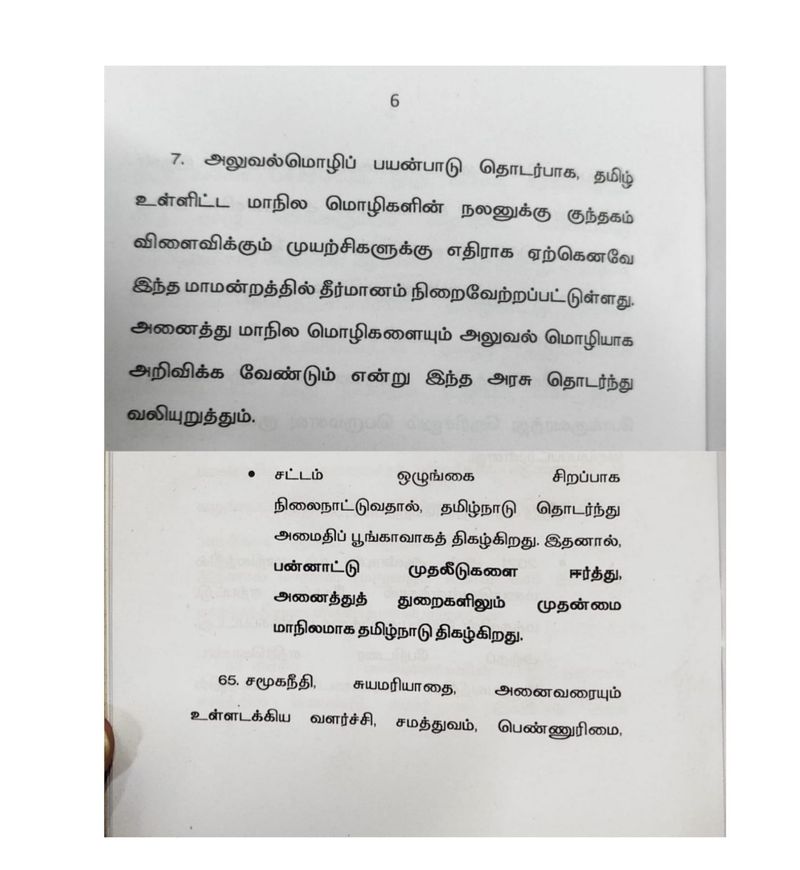 6
7. அலுவல்மொழிப் பயன்பாடு தொடர்பாக, தமிழ்
உள்ளிட்ட மாநில மொழிகளின் நலனுக்கு குந்தகம்
விளைவிக்கும் முயற்சிகளுக்கு எதிராக ஏற்கெனவே
இந்த மாமன்றத்தில் தீர்மானம் நிறைவேற்றப்பட்டுள்ளது.
அனைத்து மாநில மொழிகளையும் அலுவல் மொழியாக
அறிவிக்க வேண்டும் என்று இந்த அரசு தொடர்ந்து
வலியுறுத்தும்.
• சட்டம் ஒழுங்கை சிறப்பாக
நிலைநாட்டுவதால், தமிழ்நாடு தொடர்ந்து
அமைதிப் பூங்காவாகத் திகழ்கிறது. இதனால்,
பன்னாட்டு முதலீடுகளை ஈர்த்து,
அனைத்துத் துறைகளிலும் முதன்மை
மாநிலமாக தமிழ்நாடு திகழ்கிறது.
65. சமூகநீதி, சுயமரியாதை, அனைவரையும்
உள்ளடக்கிய வளர்ச்சி, சமத்துவம், பெண்ணுரிமை,